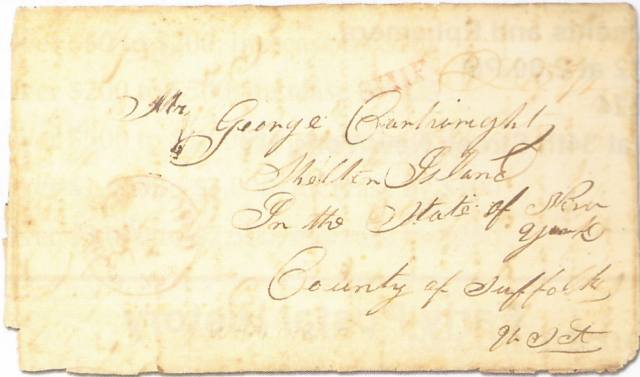 Mr
George Cartwright
Shelter Island
In the State of New
York
County of Suffolk
SHIP